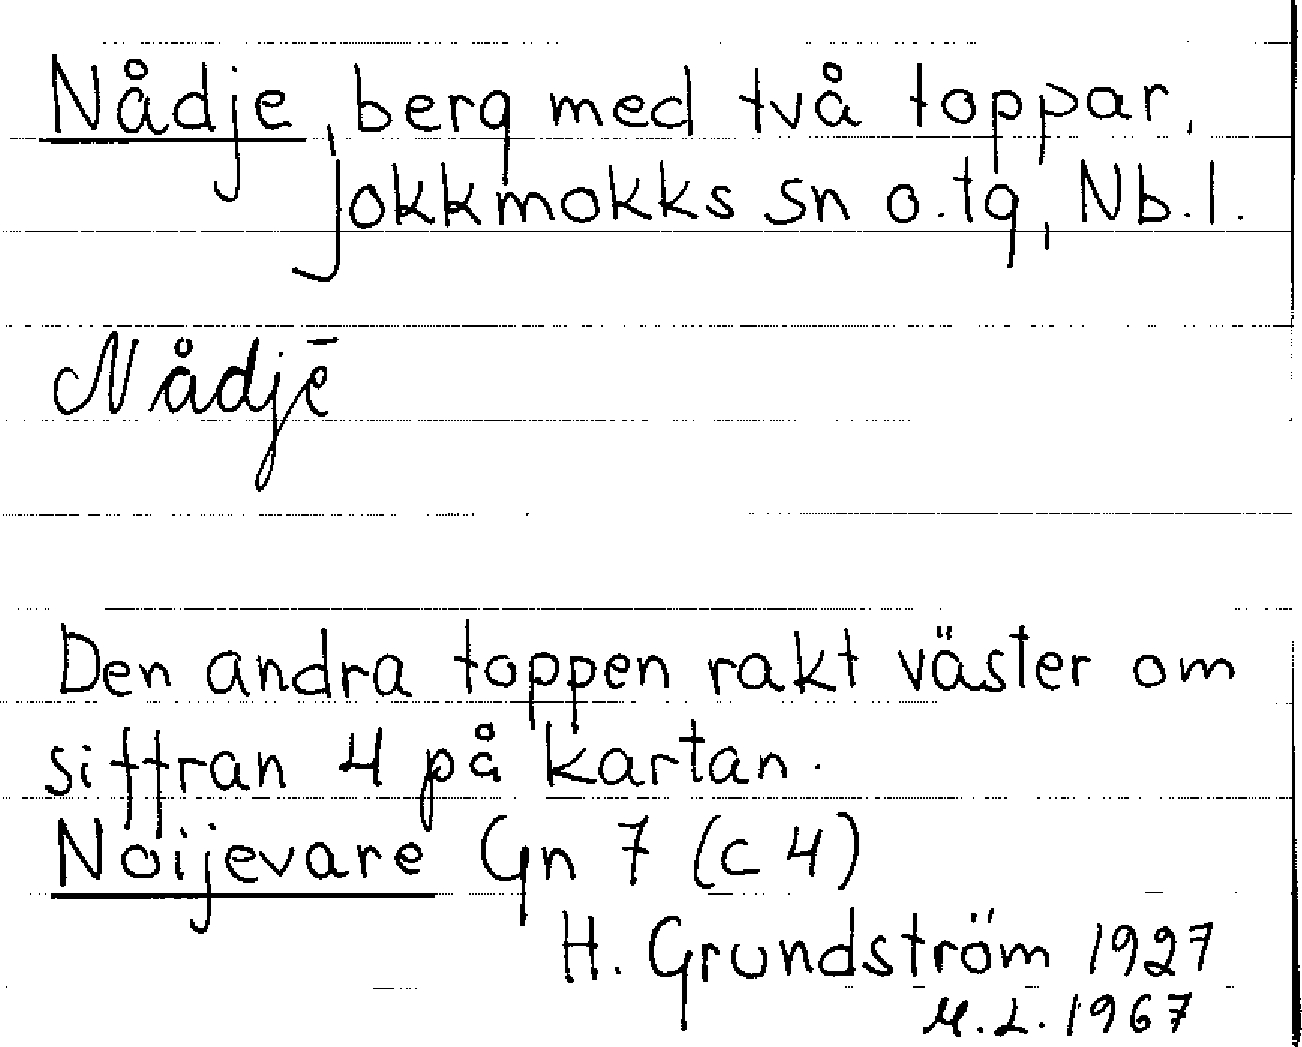 Nådje, berg med två toppar,
Jokkmokks sn o. tg, Nb. l.
Nådjē
Den andra toppen rakt väster om
siffran 4 på kartan.
Noijevare Gn 7 (c 4)
H. Grundström 1927
M. L. 1967